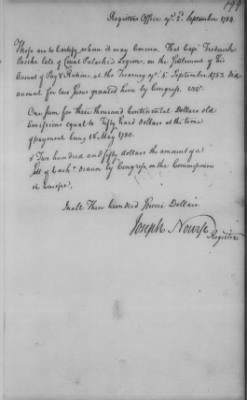 Register's Office yᵉ 2. September 1784
These are to Certify whom it may Concern That Capᵗ Frederick
late of Count Pulaski's Legion on the Settlement of his
Accounts of Pay & Rations at the Treasury yᵉ 5 September 1782 did
account for two sums granted him by Congress. viz.
One sum for three thousand Continental Dollars old
Emissions equal to Fifty hard Dollars at the time
of payment being 18. May 1780.
& Two hundred and fifty dollars the amount of a
Bill of Exchᵃ drawn by Congress on the Commissioners
in Europe.
In all Three hundred Dollars
Joseph Nourse
Register